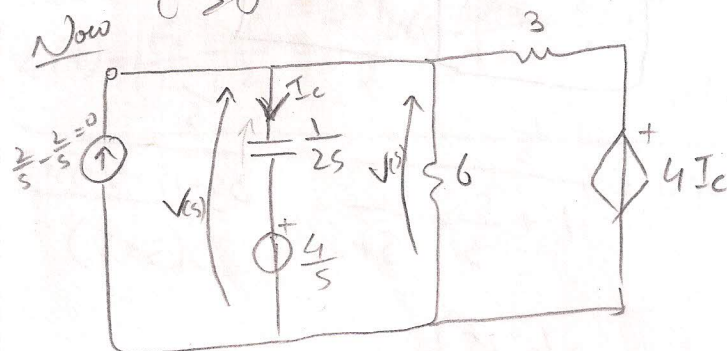 Now
3
2/s - 2/s = 0
Ic
1/2s
V(s)
V(s)
6
+
4Ic
+
4/s